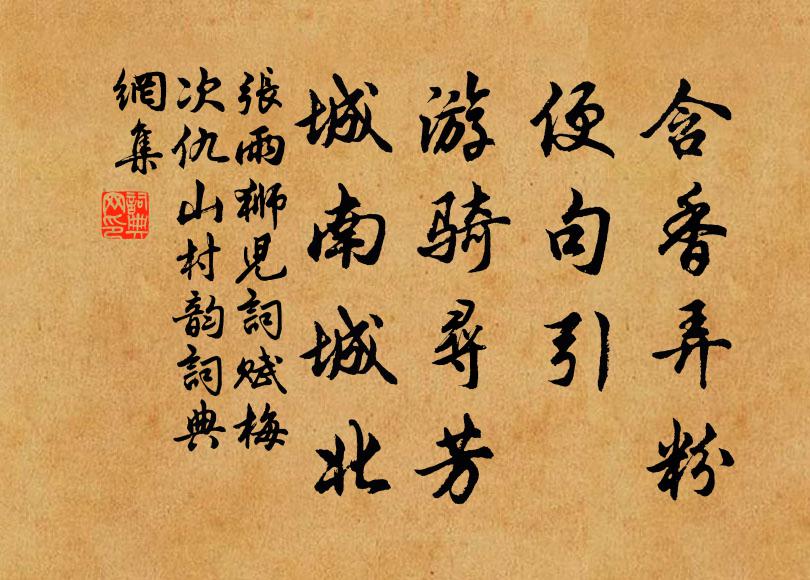 含香弄粉
便句引
游骑尋芳
城南城北
張雨獅兒詞赋梅
次仇山村韵詞典
網集
詞典網印